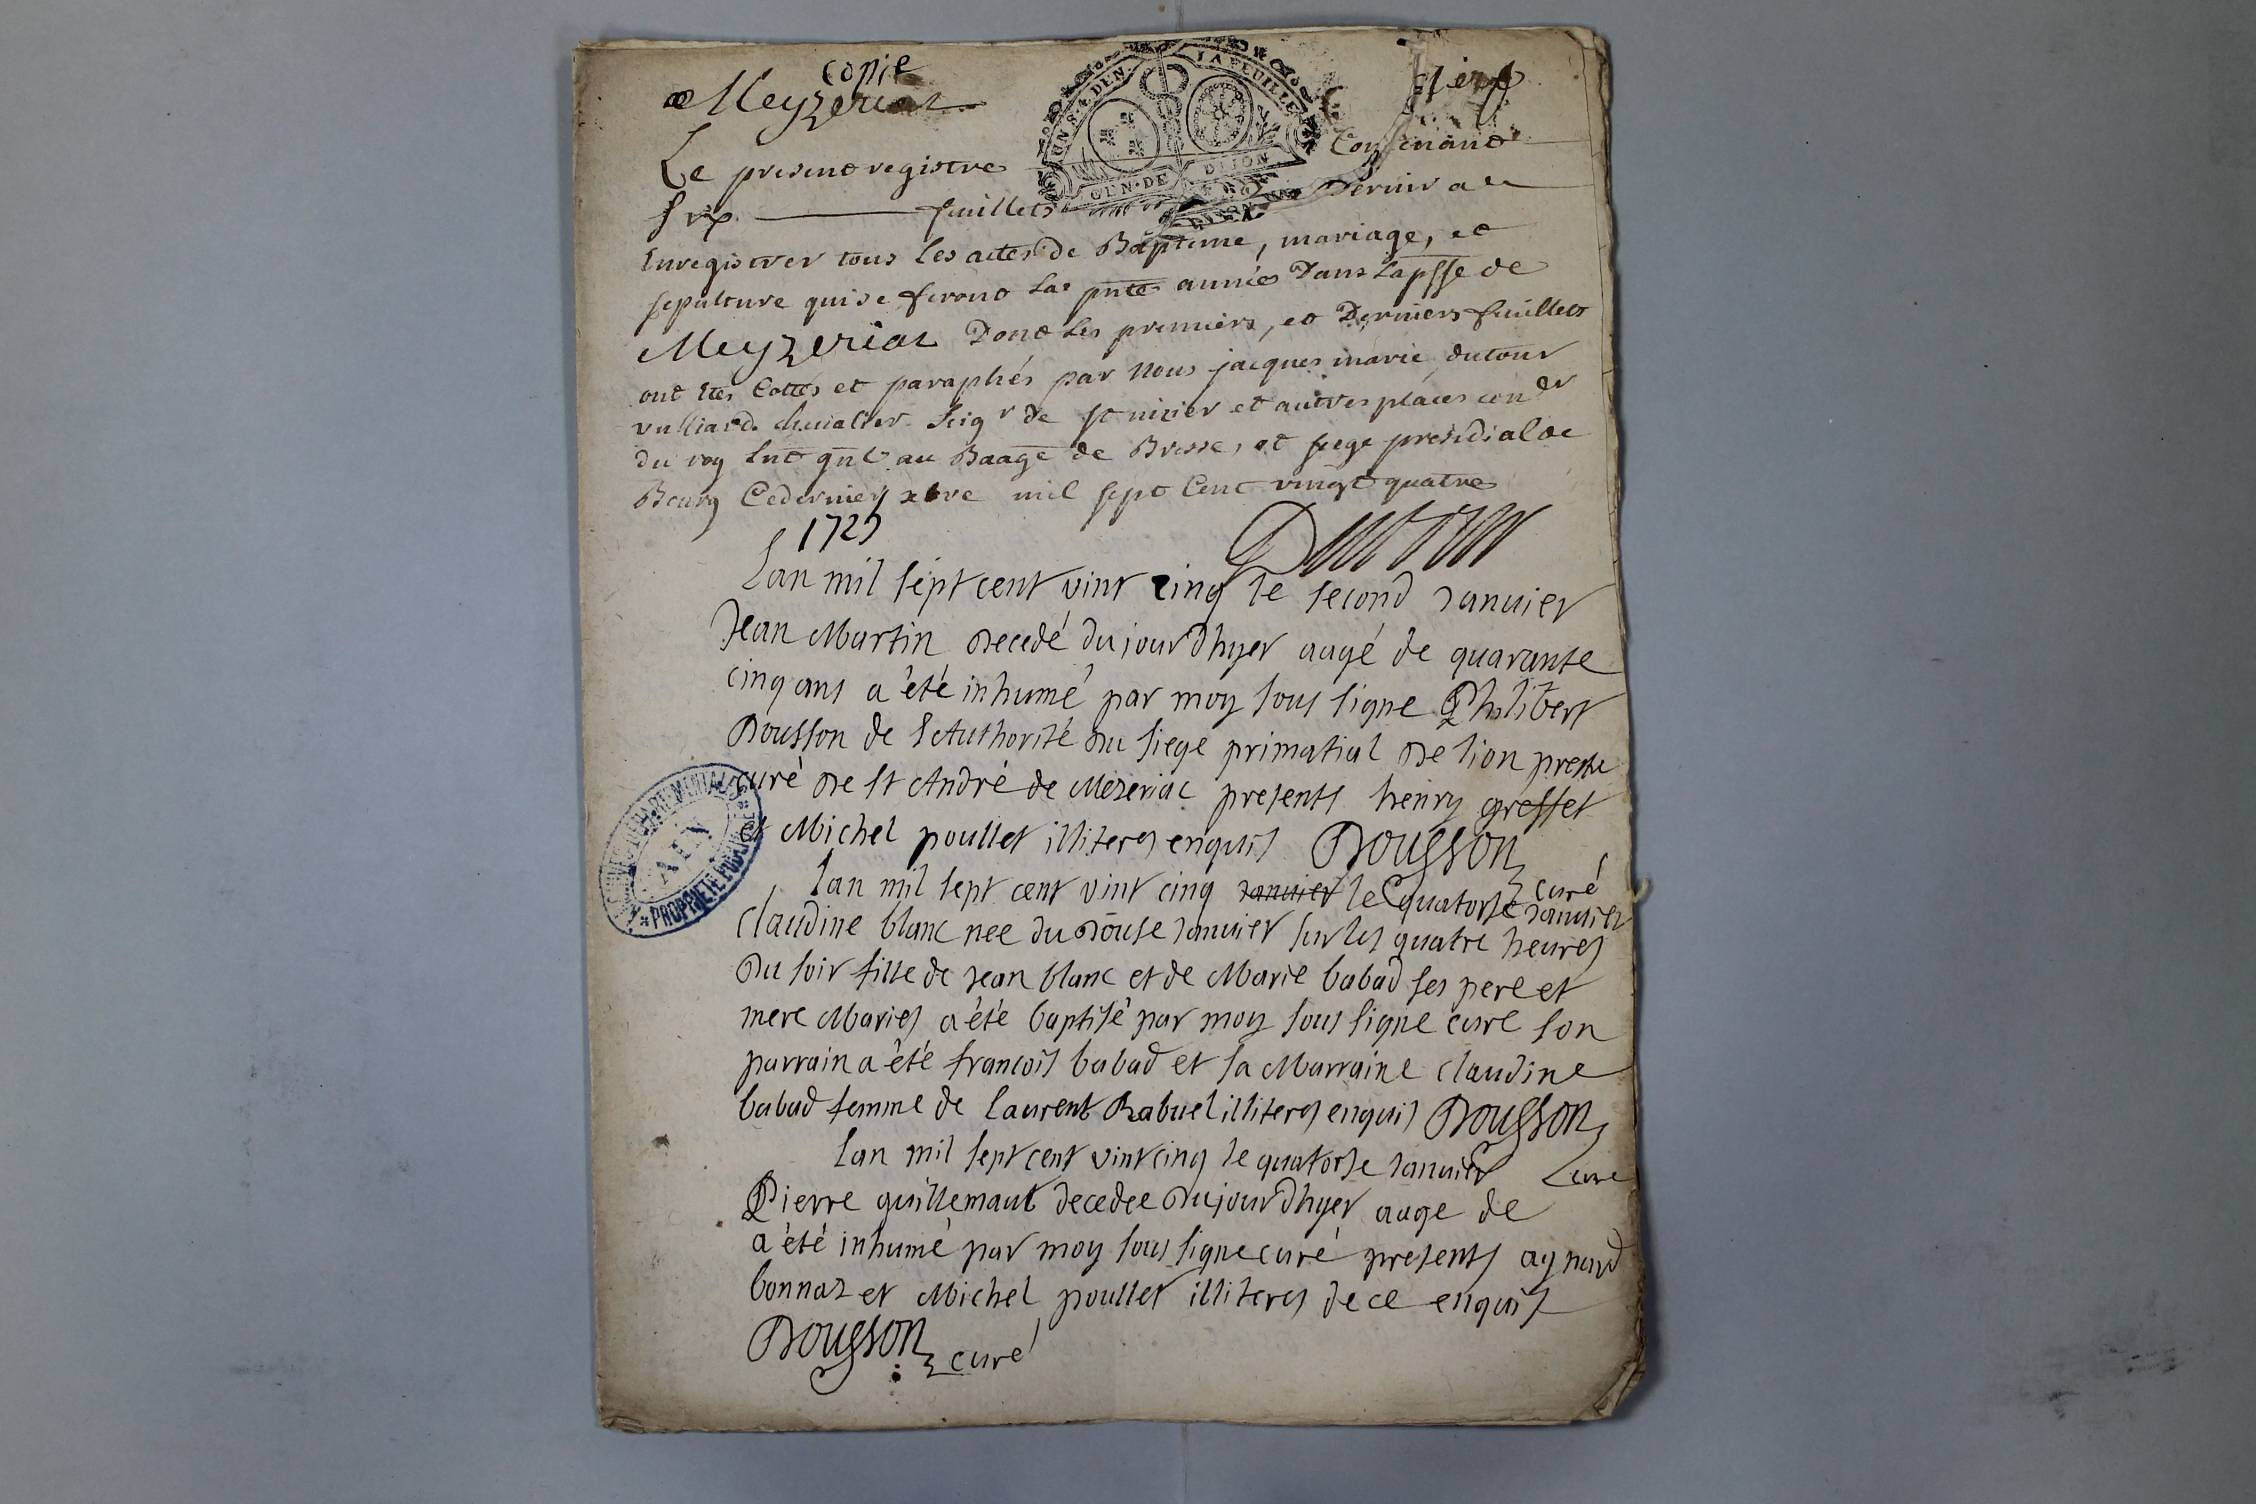 copie
Meyzeriat
UN S. 4. DEN. LA FEUILLE
GEN. DE DIJON
Le present registre Contenant
six feuillets Dernier a
Enregistrer tous les actes de Bapteme, mariage, et
sepulture qui se feront la pnte année Dans la psse de
Meyzeriat Dont les premiers, et Derniers feuillets
ont etes Cottés et paraphés par Nous jacques marie dutour
vulliard chevalier Seigr de st nizier et autres places con er
du roy Lnt gnl au Baage de Bresse, et siege presidial de
Bourg Ce dernier xbre mil sept Cent vingt quatre
Dutour
1725
Lan mil sept cent vint cinq le second Janvier
Jean Martin decedé du jour Dhyer aagé de quarante
cinq ans a été inhumé par moy sous signe Philibert
Dousson de l'Authorité du siege primatial De lion pretre
curé De st André de Mezeriac presents henry greffet
et Michel poullet illiteres enquis Dousson
curé
ARCHIVES DEPARTEMENTALES
AIN
* PROPRIETE PUBLIQUE *
Lan mil sept cent vint cinq janvier le quatorse Janvier
Claudine blanc nee du Douse Janvier sur les quatre heures
Du soir fille de Jean blanc et de Marie babad ses pere et
mere Maries a été baptisé par moy sous signe cure son
parrain a été francois babad et sa Marraine Claudine
babad femme de laurent Rabuel illiteres enquis Dousson
Lan mil sept cent vint cinq le quatorse Janvier Cure
Pierre guillemaut decedee Du jour Dhyer aage de
a été inhumé par moy sous signe curé presents aynard
bonnaz et Michel poullet illiteres de ce enquis
Dousson curé